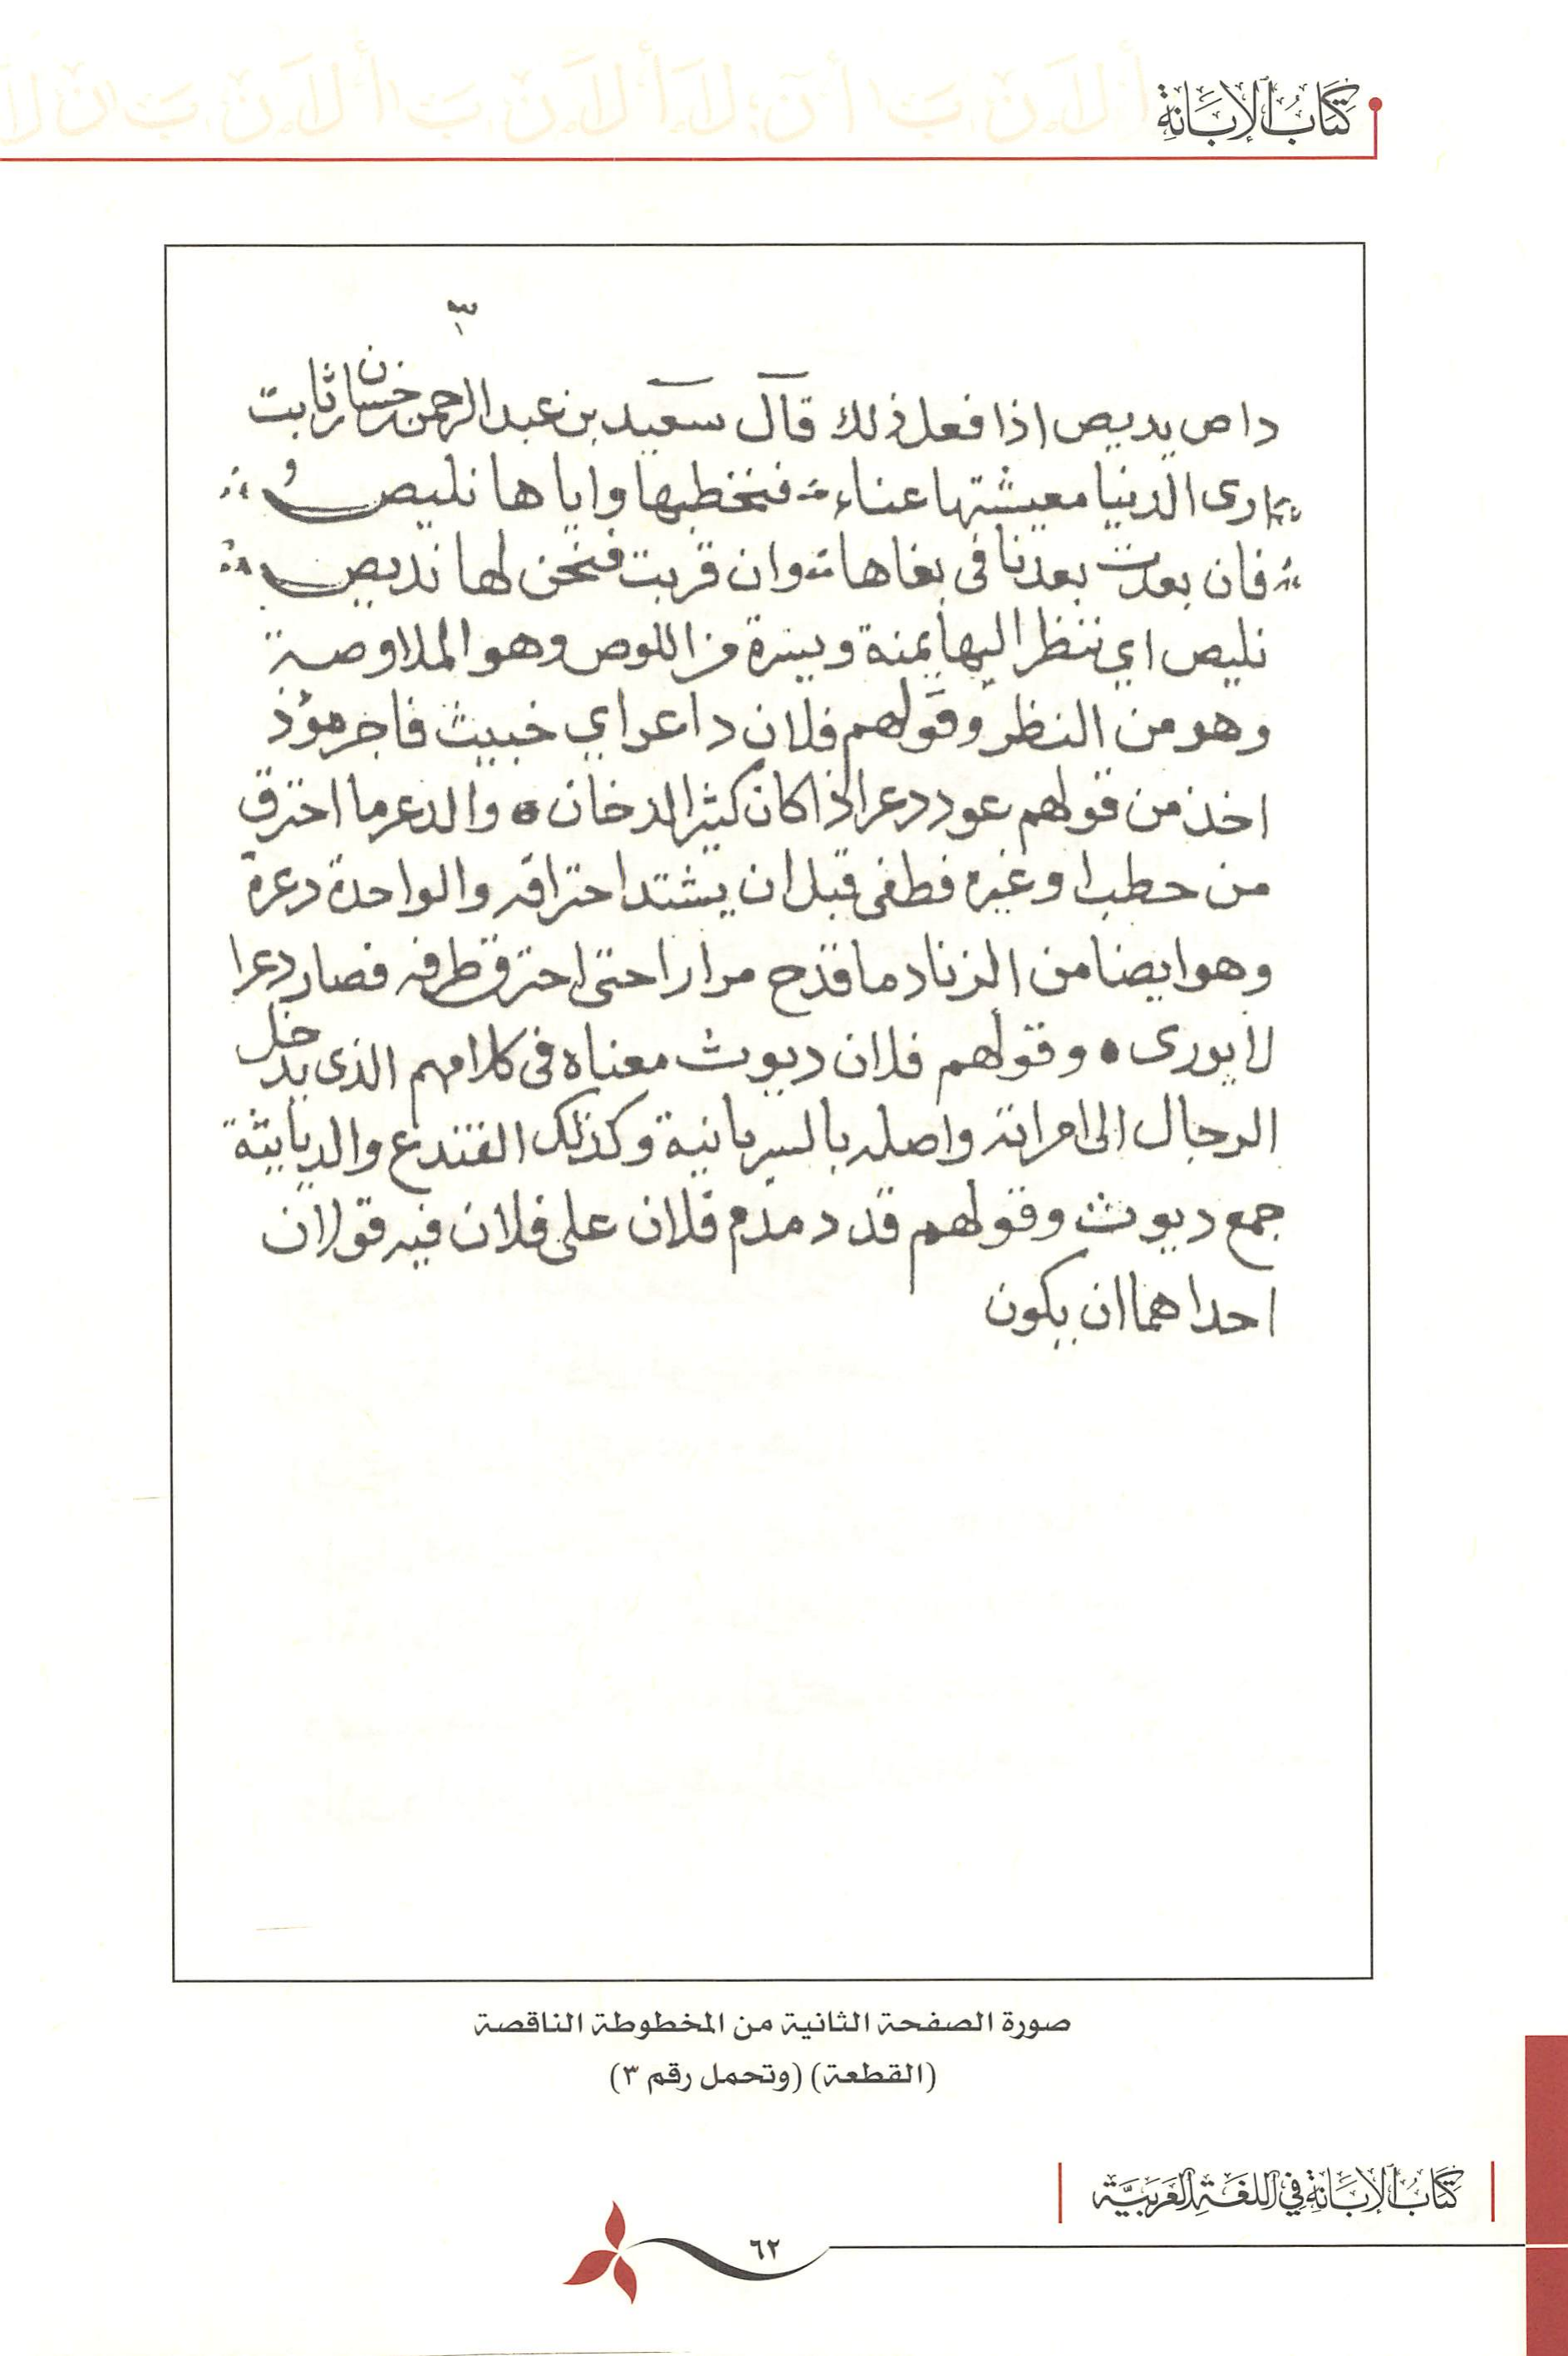 كتاب الإبانة
٣
داص يديص اذا فعل ذلك قال سعيد بن عبد الرحمن بن حسان بن ثابت
ارى الدنيا معيشتها عناء فنخطبها واياها نليص
فان بعدت بعدنا في بغاها وان قربت فنحن لها نديص
نليص اي ننظر اليها يمنة ويسرة من اللوص وهو الملاوصة
وهو من النظر وقولهم فلان داعر اي خبيث فاجر مؤذ
اخذ من قولهم عود دعر اذا كان كثير الدخان ه والدعر ما احترق
من حطب او غيره فطفى قبل ان يشتد احتراقه والواحدة دعرة
وهو ايضا من الزناد ما قدح مرارا حتى احترق طرفه فصار دعرا
لا يورى ه وقولهم فلان ديوث معناه في كلامهم الذى يدخل
الرجال الى امراته واصله بالسريانية وكذلك القندع والديابثة
جمع ديوث وقولهم قد دمدم فلان على فلان فيه قولان
احداهما ان يكون
صورة الصفحة الثانية من المخطوطة الناقصة
(القطعة) (وتحمل رقم ٣)
كتاب الإبانة في اللغة العربية
٦٢